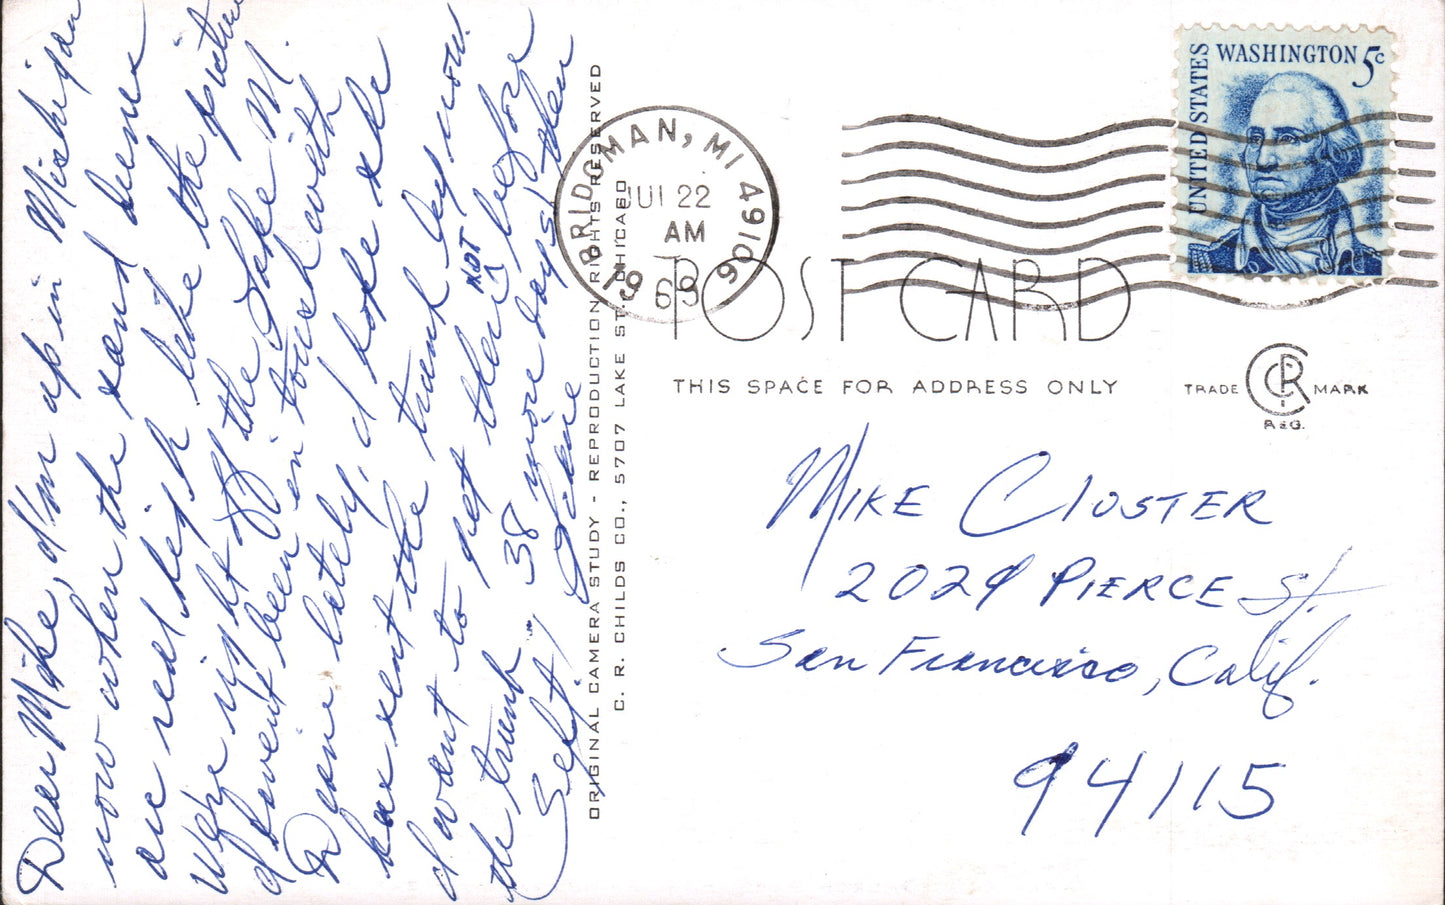 Dear Mike, I'm up in Michigan
now when the sand dunes
are real high like the picture
We're right off the Lake M.
I havent been in touch with
lately, I hope she
has sent the trunk by now.
I want to get there NOT before
the trunk - 38 more days, then
Splat!
ORIGINAL CAMERA STUDY - REPRODUCTION RIGHTS RESERVED
C. R. CHILDS CO., 5707 LAKE ST., CHICAGO
BRIDGMAN, MI 49106
JUL 22
AM
1969
UNITED STATES
WASHINGTON 5c
POST CARD
THIS SPACE FOR ADDRESS ONLY
TRADE CRC MARK
R&G.
MIKE CLOSTER
2029 PIERCE St.
San Francisco, Calif.
94115